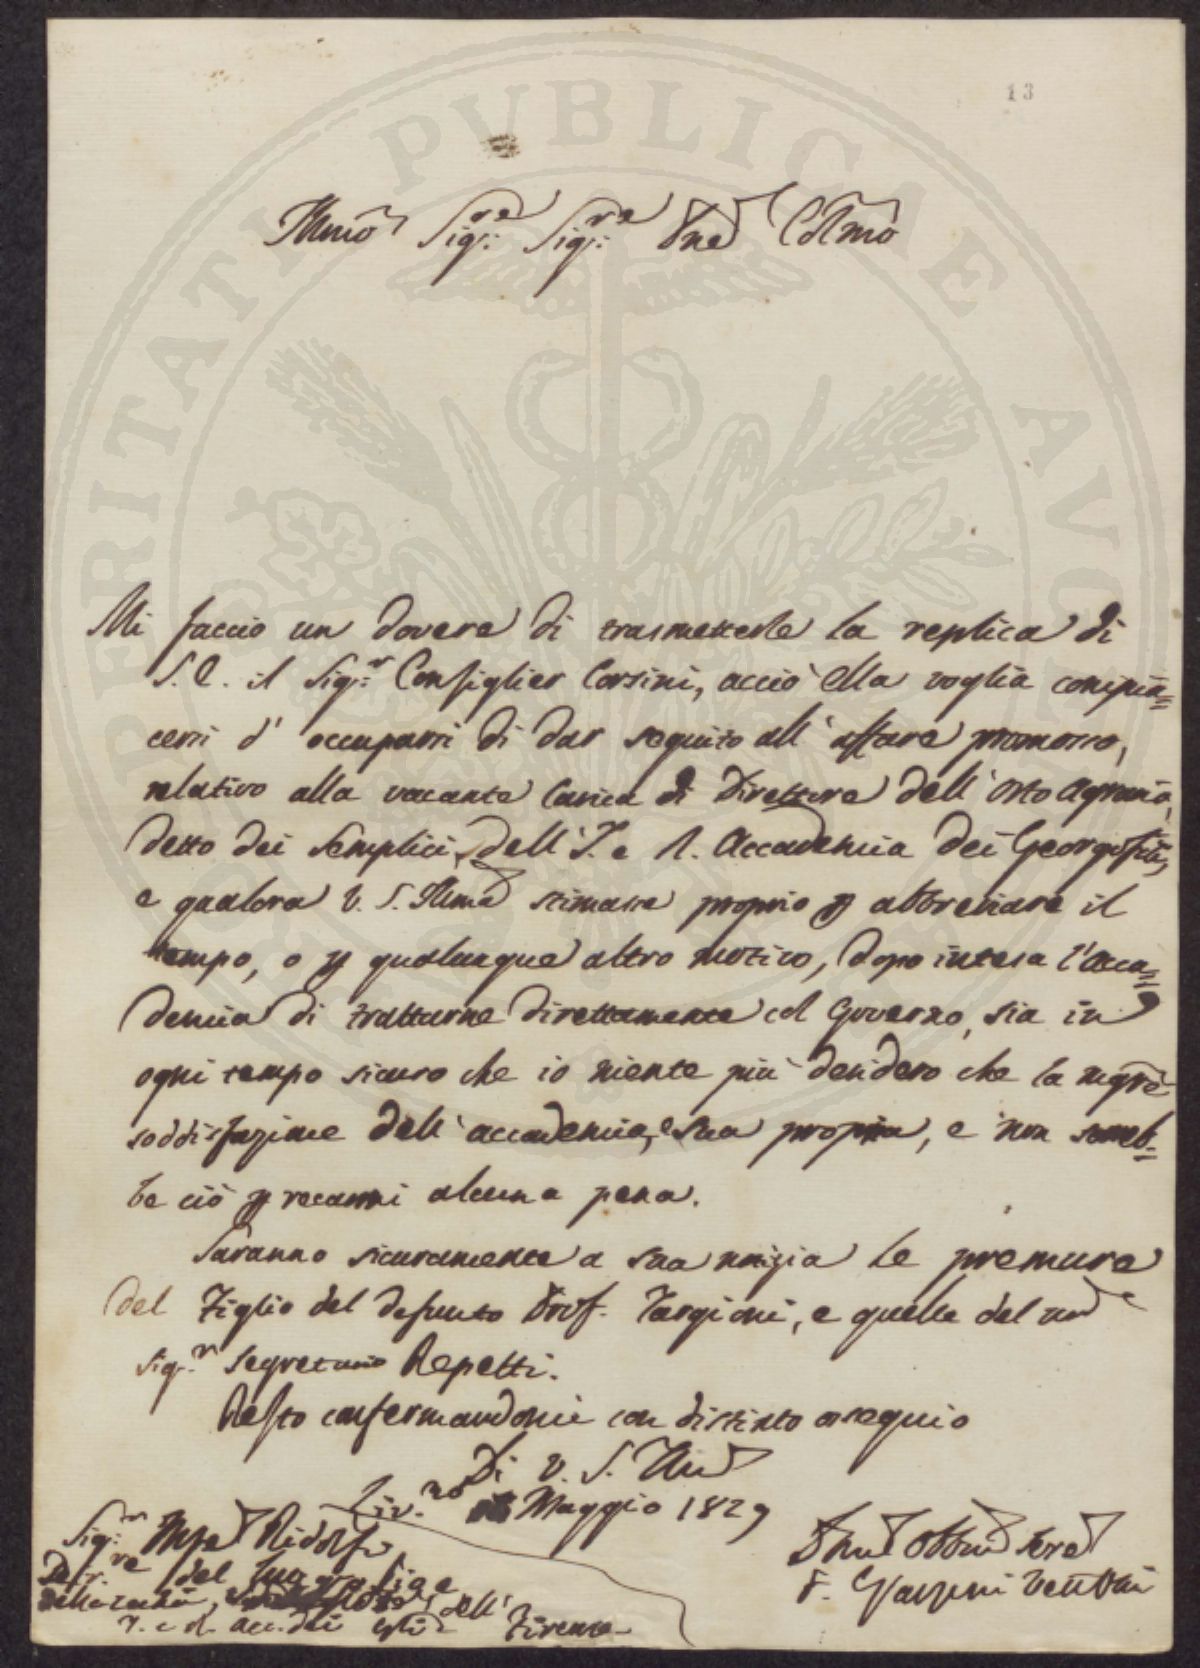 13
Illmo Sigre Sigre Pne Colmo
Mi faccio un dovere di trasmetterle la replica di
S. E. il Sigr Consiglier Corsini, acciò ella voglia compia=
cersi d' occuparsi di dar seguito all' affare promosso,
relativo alla vacante carica di Direttore dell' Orto Agrario,
detto dei Semplici, dell' I. e R. Accademia dei Georgofili,
e qualora V. S. Illma stimasse proprio p abbreviare il
tempo, o p qualunque altro motivo, dopo intesa l' Acca=
demia di trattarne direttamente col Governo, sia in
ogni tempo sicuro che io niente più desidero che la magre
soddisfazione dell' accademia, e sua propria, e non sareb=
be ciò p recarmi alcuna pena.
Saranno sicuramente a sua notizia le premure
del Figlio del defunto Prof. Targioni, e quelle del
Sigr Segretario Repetti.
Resto confermandomi con distinto ossequio
Di V. S. Illma
Liv.no Maggio 1829
Sigr Mse Ridolfi
del
dell'
I. e R. acc. dei Firenze
Obbmo Serre
OPERITATI PVBLICAE AVGE